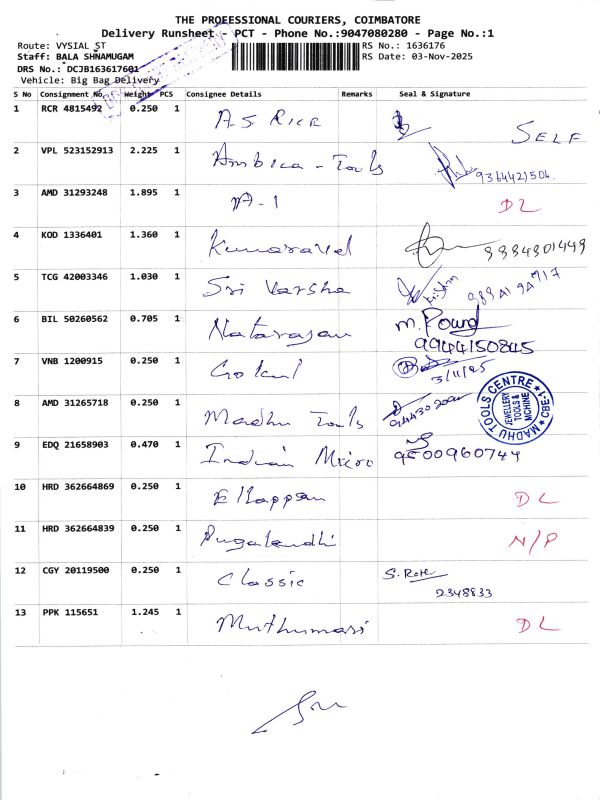 THE PROEESSIONAL COURIERS, COIMBATORE
Delivery Runsheet - PCT - Phone No.:9047080280 - Page No.:1
Route: VYSIAL ST RS No.: 1636176
Staff: BALA SHNAMUGAM RS Date: 03-Nov-2025
DRS No.: DCJB163617601
Vehicle: Big Bag Delivery
S No Consignment No. Weight PCS Consignee Details Remarks Seal & Signature
1 RCR 4815492 0.250 1 A S RICR SELF
2 VPL 523152913 2.225 1 Ambica - Tools 9364421506
3 AMD 31293248 1.895 1 A-1 DL
4 KOD 1336401 1.360 1 Kumaravel 9884301449
5 TCG 42003346 1.030 1 Sri Varsha
6 BIL 50260562 0.705 1 Natarajan
9944150845
7 VNB 1200915 0.250 1 Gokul
3/11/25
8 AMD 31265718 0.250 1 Madhu Tools
MADHU TOOLS CENTRE ★ CBE-1 ★
JEWELLERY
TOOLS &
MCHINE
9 EDQ 21658903 0.470 1 Indian Micro 9500960744
10 HRD 362664869 0.250 1 Ellappan DL
11 HRD 362664839 0.250 1 Pugalendhi N/P
12 CGY 20119500 0.250 1 Classic
2348833
13 PPK 115651 1.245 1 Muthumari DL